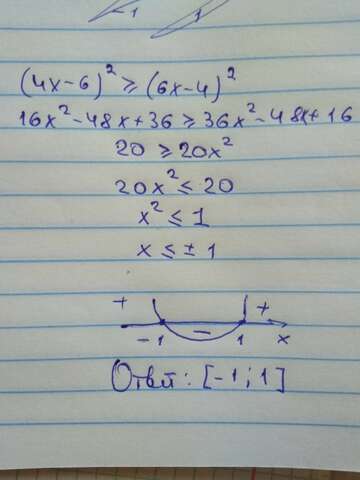 -1 1
(4x-6)² ≥ (6x-4)²
16x²-48x+36 ≥ 36x²-48x+16
20 ≥ 20x²
20x² ≤ 20
x² ≤ 1
x ≤ ± 1
+ - +
-1 1 x
Ответ: [-1; 1]